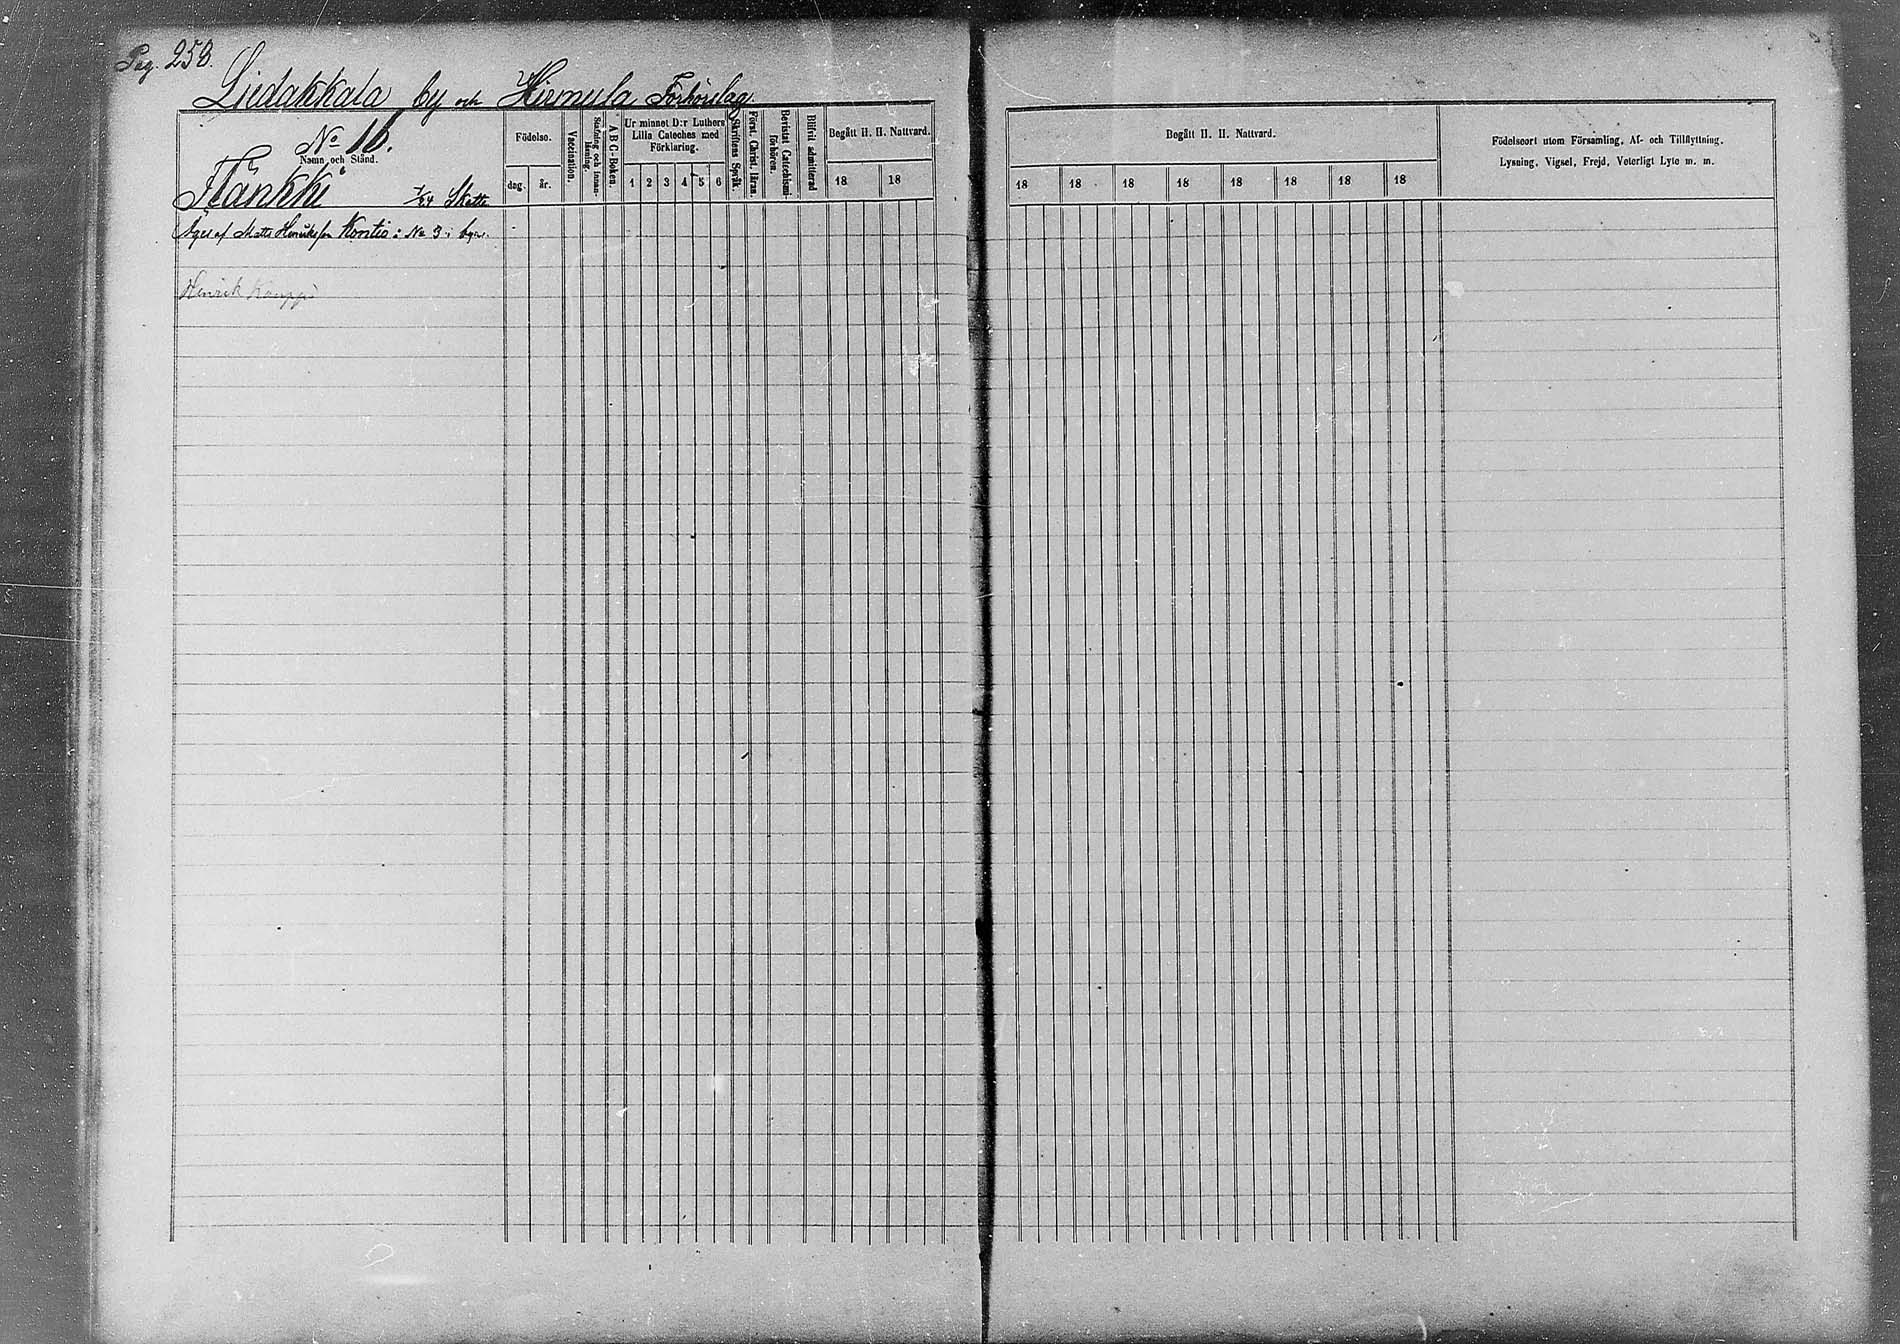 Pag. 253.
Liedakkala by och Hirmula Förhörslag.
No 16.
Namn och Stånd.
Födelse.
Vaccination.
Stafning och Innanläsning.
A B C-Boken.
Ur minnet D:r Luthers
Lilla Cateches med
Förklaring.
Skriftens Språk.
Först. Christ. läran.
Bevistat Catechismi-
förhören.
Blifvit admitterad
Begått H. H. Nattvard.
Begått H. H. Nattvard.
Födelseort utom Församling, Af- och Tillflyttning,
Lysning, Vigsel, Frejd, Veterligt Lyte m. m.
dag. år.
1 2 3 4 5 6
18 18
18 18 18 18 18 18 18 18
Flänkki 7/64 Skatte
Äges af Matts Henriksson Kontio: No 3 i byn.
Henrik Kauppi